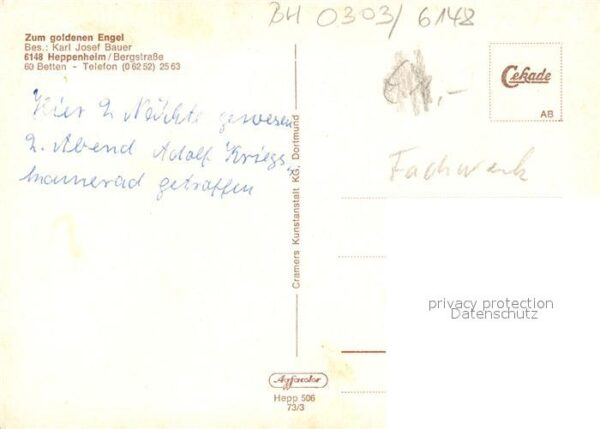 BH 0303/6148
Zum goldenen Engel
Bes.: Karl Josef Bauer
6148 Heppenheim/Bergstraße
60 Betten - Telefon (0 62 52) 25 63
Hier 2 Nächte gewesen
2. Abend Adolf Kriegs
kamerad getroffen
Cramers Kunstanstalt KG, Dortmund
Cekade
AB
Fachwerk
privacy protection
Datenschutz
Agfacolor
Hepp 506
73/3